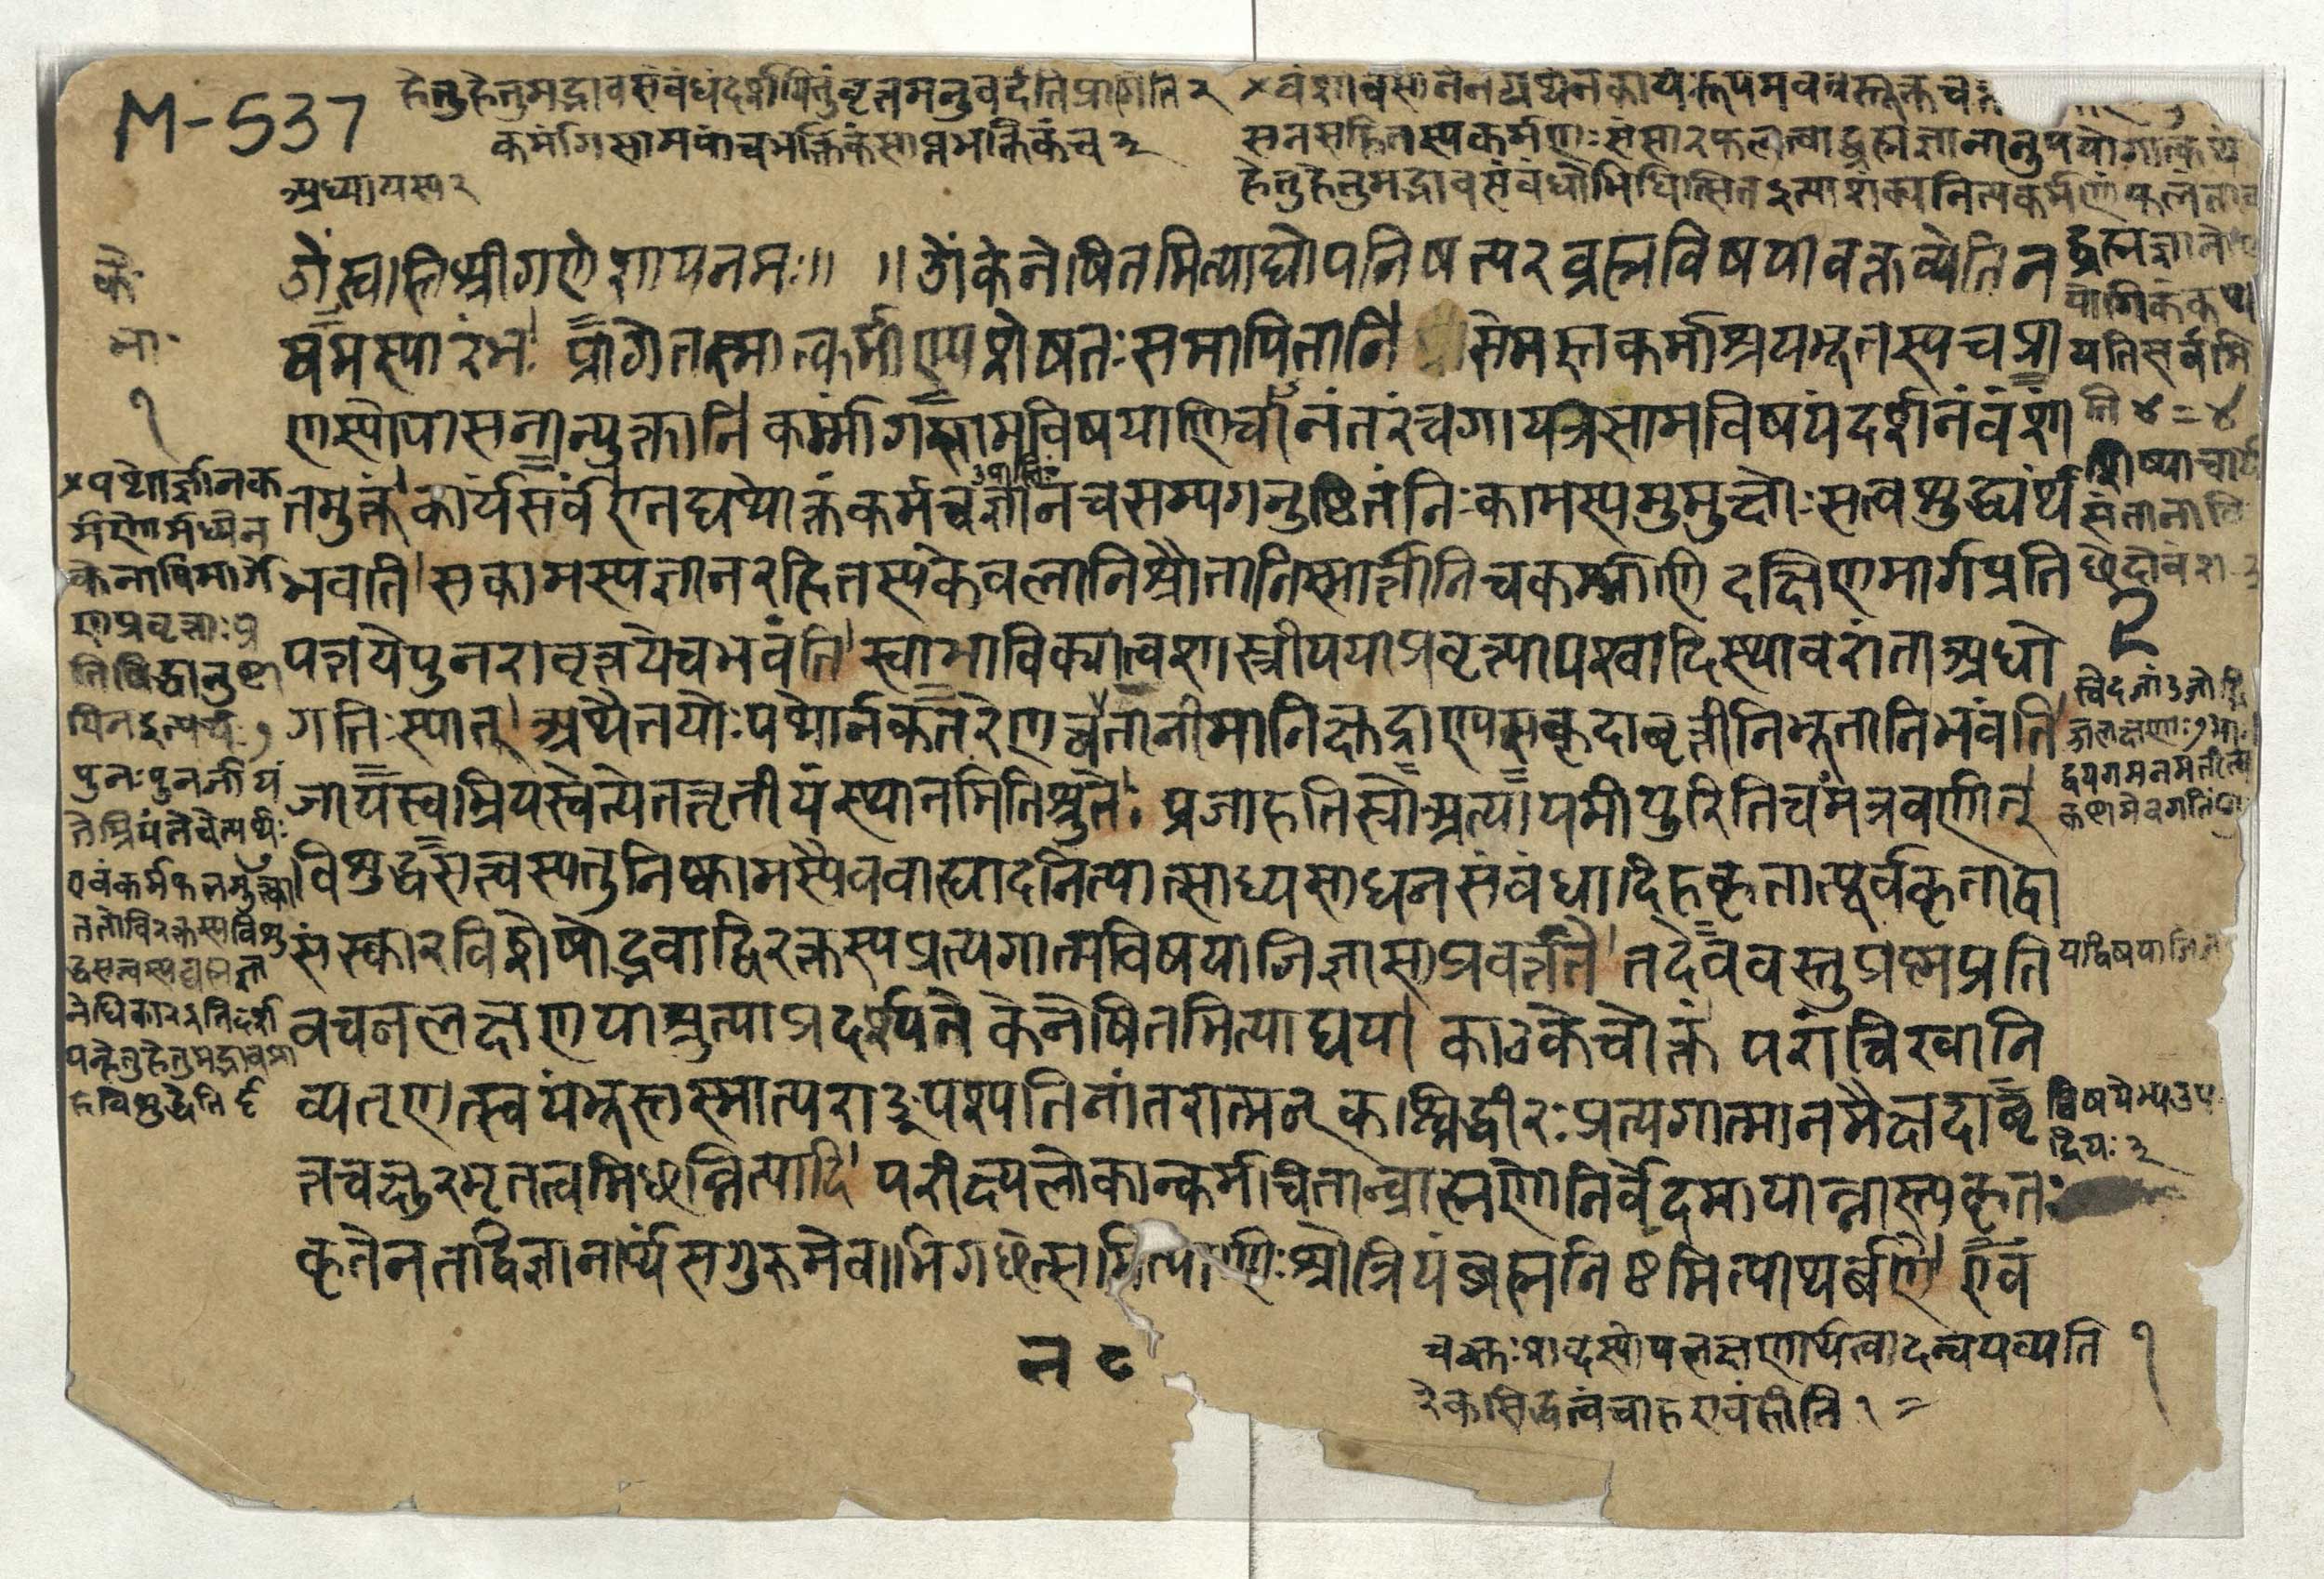 M-537
हेतुहेतुमद्भावसंबंधंदर्शयितुंवृत्तमनुवदतिप्रागिति२
कर्मांगसामपांचभक्तिकंसाप्तभक्तिकंच३
अध्यायस्य२
सनसहितस्यकर्मणः संसारफलत्वाद्ब्रह्मज्ञानानुपयोगात्कथं
हेतुहेतुमद्भावसंबंधोभिधित्सितइत्याशंक्यनित्यकर्मणांफलं
के॰
भा॰
१
ॐस्वस्तिश्रीगणेशायनमः॥ ॥ॐकेनेषितमित्याद्योपनिषत्परब्रह्मविषयावक्तव्येतिन
वमस्यारंभः प्रागेतस्मात्कर्माण्यशेषतःसमापितानि समस्तकर्माश्रयभूतस्यचप्रा
णस्योपासनान्युक्तानि कर्मांगसामविषयाणिचानंतरंचगायत्रसामविषयंदर्शनंवंशां
तमुक्तं कार्यंसर्वंएतद्यथोक्तंकर्मचज्ञानंचसम्यगनुष्टितंनिःकामस्यमुमुक्षोःसत्वशुद्ध्यर्थं
भवति सकामस्यज्ञानरहितस्यकेवलानिश्रौतानिस्मार्त्तानिचकर्म्माणि दक्षिणमार्गप्रति
पत्तयेपुनरावृत्तयेचभवंति स्वाभाविक्यात्वशास्त्रीययाप्रवृत्त्यापश्वादिस्थावरांताअधो
गतिःस्यात् अथैतयोःपथोर्नकतरेणचनतानीमानिक्षुद्राण्यसकृदावृत्तीनिभूतानिभवंति
जायस्वम्रियस्वेत्येतत्तृतीयंस्थानमितिश्रुतेः प्रजाहतिस्रोअत्यायमीयुरितिचमंत्रवर्णात्
विशुद्धसत्त्वस्यतुनिष्कामस्यैवबाह्यादनित्यात्साध्यसाधनसंबंधादिहकृतात्पूर्वकृताद्वा
संस्कारविशेषोद्भवाद्विरक्तस्यप्रत्यगात्मविषयाजिज्ञासाप्रवर्त्तते तदेववस्तुप्रश्नप्रति
वचनलक्षणयाश्रुत्याप्रदर्श्यते केनेषितमित्याद्यया काठकेचोक्तं परांचिखानि
व्यतृणत्स्वयंभूस्तस्मात्पराङ्पश्यतिनांतरात्मन् कश्चिद्धीरःप्रत्यगात्मानमैक्षदावृ
त्तचक्षुरमृतत्वमिछन्नित्यादि परीक्ष्यलोकान्कर्मचितान्ब्राह्मणोनिर्वेदमायान्नास्त्यकृतः
कृतेनतद्विज्ञानार्थंसगुरुमेवाभिगछेत्समित्पाणिःश्रोत्रियंब्रह्मनिष्ठमित्याथर्वणे एवं
द्ब्रह्मज्ञानो
यतिसर्वमि
ति४=४
शिष्याचार्य
२
×पथोर्ज्ञानक
र्मणोर्मध्येन
केनापिमार्गे
णप्रवृत्ताःप्र
तिषिद्धानुष्ठा
यिनइत्यर्थः१
पुनःपुनर्जायं
तेम्रियंतेचेत्यर्थः
एवंकर्मफलमुक्त्वा
ततोविरक्तस्यविशु
द्धसत्वस्यब्रह्मज्ञा
नेधिकारइतिदर्श
यन्हेतुहेतुमद्भावमा
हविशुद्धेति
विषयेभ्य
न ८
वक्तःशब्दस्योपलक्षणार्थत्वादन्वयव्यति
रेकसिद्धत्वंचाहएवंहीति१=
१